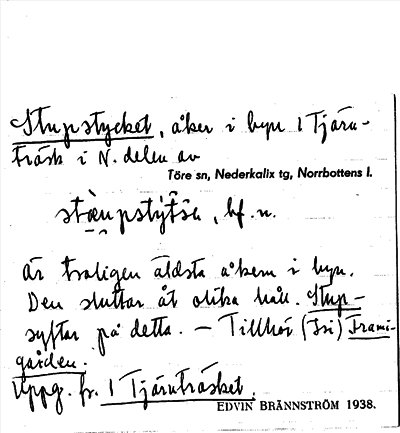 Stupstycket, åker i byn 1 Tjärn-
träsk i N. delen av
Töre sn, Nederkalix tg, Norrbottens l.
bf. n.
är troligen äldsta åkern i byn.
Den sluttar åt olika håll. Stup-
syftar på detta. – Tillhör (Isi) Frami-
gården.
Uppg. fr. 1 Tjärnträsket.
EDVIN BRÄNNSTRÖM 1938.